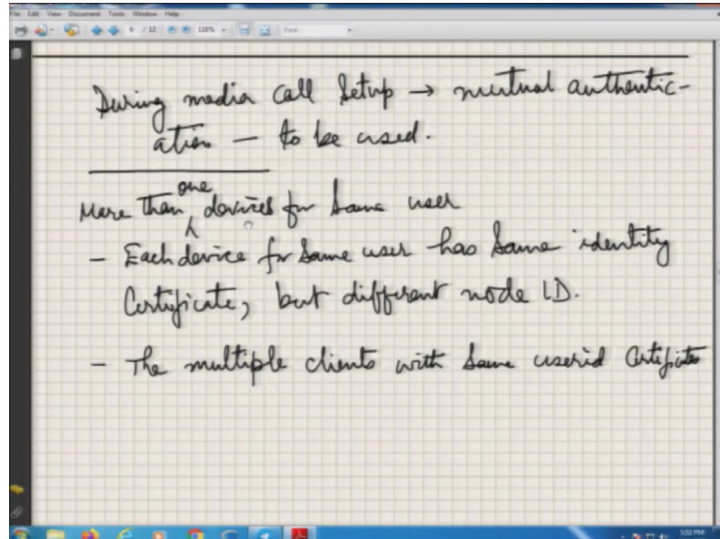 File Edit View Document Tools Window Help
6 / 12 110% Find
During media call Setup → mutual authentic-
ation — to be used.
one
More than devices for Same user
- Each device for Same user has Same identity
Certificate, but different node ID.
- The multiple clients with Same userid Certificates
5:02 PM